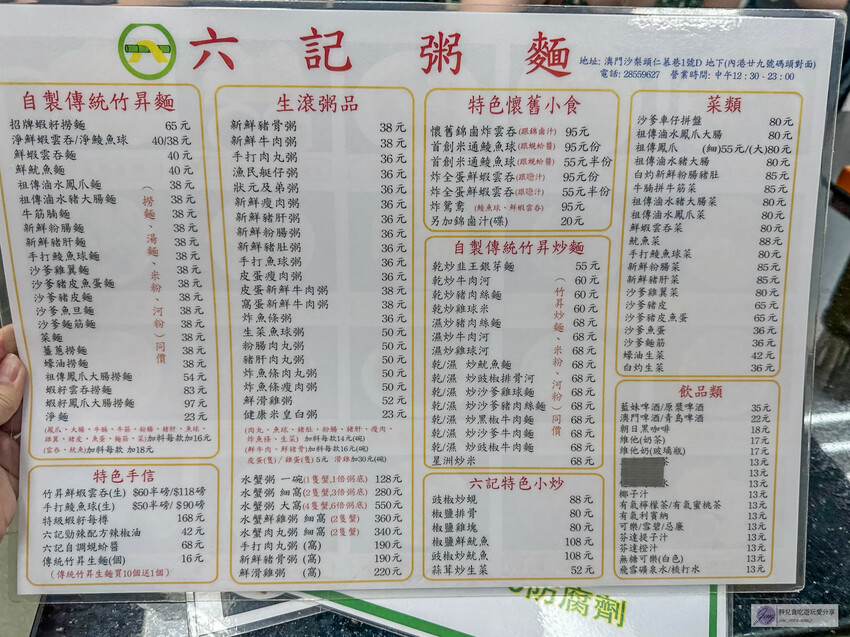 六記粥麵
地址: 澳門沙梨頭仁慕巷1號D 地下(內港廿九號碼頭對面)
電話: 28559627 營業時間: 中午12:30-23:00
自製傳統竹昇麵
招牌蝦籽撈麵 65元
淨鮮蝦雲吞/淨鯪魚球 40/38元
鮮蝦雲吞麵 40元
鮮魷魚麵 40元
祖傳滷水鳳爪麵 38元
祖傳滷水豬大腸麵 38元
牛筋腩麵 38元
新鮮粉腸麵 38元
新鮮豬肝麵 38元
手打鯪魚球麵 38元
沙爹雞翼麵 38元
沙爹豬皮魚蛋麵 38元
沙爹豬皮麵 38元
沙爹魚旦麵 38元
沙爹麵筋麵 38元
菜麵 38元
薑蔥撈麵 38元
蠔油撈麵 38元
祖傳鳳爪大腸撈麵 54元
蝦籽雲吞撈麵 83元
蝦籽鳳爪大腸撈麵 97元
淨麵 23元
(撈麵、湯麵、米粉、河粉)同價
(鳳爪、大腸、牛腩、牛筋、粉腸、豬肝、魚球、
雞翼、豬皮、魚蛋、麵筋、菜)加料每款加16元
(雲吞、魷魚)加料每款 加18元
特色手信
竹昇鮮蝦雲吞(生) $60半磅/$118磅
手打鯪魚球(生) $50半磅/$90磅
特級蝦籽每樽 168元
六記勁辣配方辣椒油 42元
六記自調蜆蚧醬 68元
傳統竹昇生麵(個) 16元
(傳統竹昇生麵買10個送1個)
生滾粥品
新鮮豬骨粥 38元
新鮮牛肉粥 38元
手打肉丸粥 36元
漁民艇仔粥 36元
狀元及弟粥 36元
新鮮瘦肉粥 36元
新鮮豬肝粥 36元
新鮮豬肚粥 36元
手打魚球粥 36元
皮蛋瘦肉粥 36元
皮蛋新鮮牛肉粥 38元
窩蛋新鮮牛肉粥 38元
炸魚條粥 36元
生菜魚球粥 50元
粉腸肉丸粥 50元
豬肝肉丸粥 50元
炸魚條肉丸粥 50元
炸魚條瘦肉粥 50元
鮮滑雞粥 52元
健康米皇白粥 23元
(肉丸、魚球、豬肚、粉腸、豬肝、瘦肉、
炸魚條、生菜) 加料每款14元(碗)
(鮮牛肉、鮮豬骨)加料每款16元(碗)
皮蛋(隻)/雞蛋(隻)5元 滑雞加30元(碗)
水蟹粥 一碗(1隻蟹,1倍粥底) 128元
水蟹粥 細窩(2隻蟹,3倍粥底) 280元
水蟹粥 大窩(4隻蟹,6倍粥底) 550元
水蟹鮮雞粥 細窩(2隻蟹) 360元
水蟹肉丸粥 細窩(2隻蟹) 340元
手打肉丸粥 (窩) 190元
新鮮豬骨粥 (窩) 190元
鮮滑雞粥 (窩) 220元
特色懷舊小食
懷舊錦鹵炸雲吞(跟錦鹵汁) 95元
首創米通鯪魚球(跟蜆蚧醬) 95元份
首創米通鯪魚球(跟蜆蚧醬) 55元半份
炸全蛋鮮蝦雲吞(跟𠱁汁) 95元份
炸全蛋鮮蝦雲吞(跟𠱁汁) 55元半份
炸鴛鴦 (鯪魚球、鮮蝦雲吞) 95元
另加錦鹵汁(碟) 20元
自製傳統竹昇炒麵
乾炒韭王銀芽麵 55元
乾炒牛肉河 60元
乾炒豬肉絲麵 60元
乾炒雞球米 60元
濕炒豬肉絲麵 68元
濕炒牛肉河 68元
濕炒雞球河 68元
乾/濕 炒魷魚麵 68元
乾/濕 炒豉椒排骨河 68元
乾/濕 炒沙爹雞球麵 68元
乾/濕 炒沙爹豬肉絲麵 68元
乾/濕 炒黑椒牛肉麵 68元
乾/濕 炒沙爹牛肉麵 68元
乾/濕 炒豉椒牛肉麵 68元
星洲炒米 68元
(竹昇炒麵、米粉、河粉)同價
六記特色小炒
豉椒炒蜆 88元
椒鹽排骨 80元
椒鹽雞塊 80元
椒鹽鮮魷魚 108元
豉椒炒魷魚 108元
蒜茸炒生菜 52元
菜類
沙爹車仔拼盤 80元
祖傳滷水鳳爪大腸 80元
祖傳鳳爪 (細)55元/(大)80元
祖傳滷水豬大腸 80元
白灼新鮮粉腸豬肚 85元
牛腩拼牛筋菜 85元
祖傳滷水豬大腸菜 80元
祖傳滷水鳳爪菜 80元
鮮蝦雲吞菜 80元
魷魚菜 88元
手打鯪魚球菜 80元
新鮮粉腸菜 85元
新鮮豬肝菜 85元
沙爹雞翼菜 80元
沙爹豬皮 65元
沙爹豬皮魚蛋 65元
沙爹魚蛋 36元
沙爹麵筋 36元
蠔油生菜 42元
白灼生菜 36元
飲品類
藍妹啤酒/原漿啤酒 35元
澳門啤酒/青島啤酒 22元
朝日黑咖啡 18元
維他(奶茶) 17元
維他奶(玻璃瓶) 17元
茶 13元
13元
椰子汁 13元
有氣檸檬茶/有氣蜜桃茶 13元
有氣利賓納 13元
可樂/雪碧/忌廉 13元
芬達提子汁 13元
芬達橙汁 13元
無糖可樂(白色) 13元
飛雪礦泉水/梳打水 13元
防腐劑
胖兒貪吃遊玩愛分享